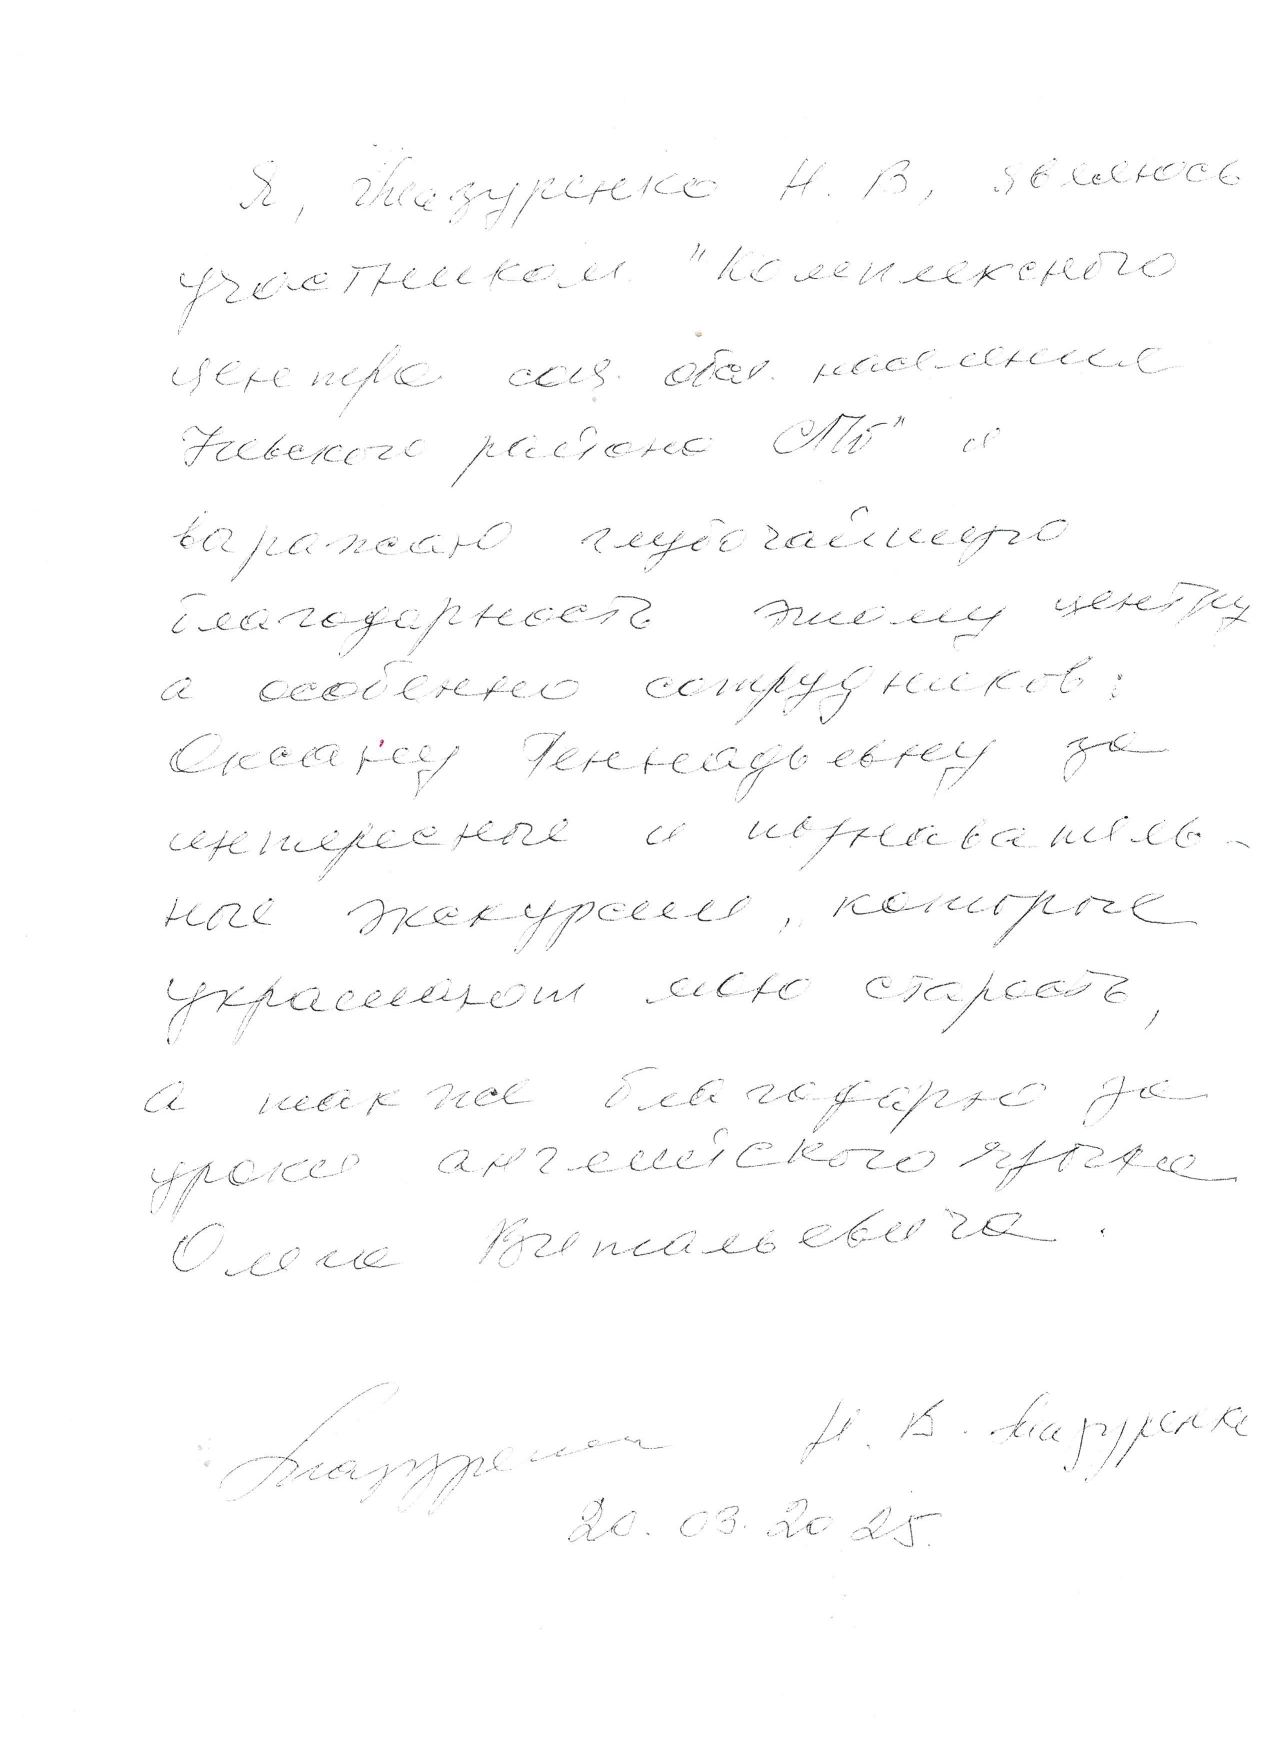 Я, Мазуренко Н. В, являюсь
участником "Комплексного
центра соц. обсл. населения
Невского района СПб" и
выражаю глубочайшую
благодарность этому центру
а особенно сотрудников:
Оксану Геннадьевну за
интересные и познаватель-
ные экскурсии, которые
украшают мою старость,
а также благодарю за
уроки английского языка
Олега Витальевича.
Мазуренко Н. В. Мазуренко
20.03.2025.